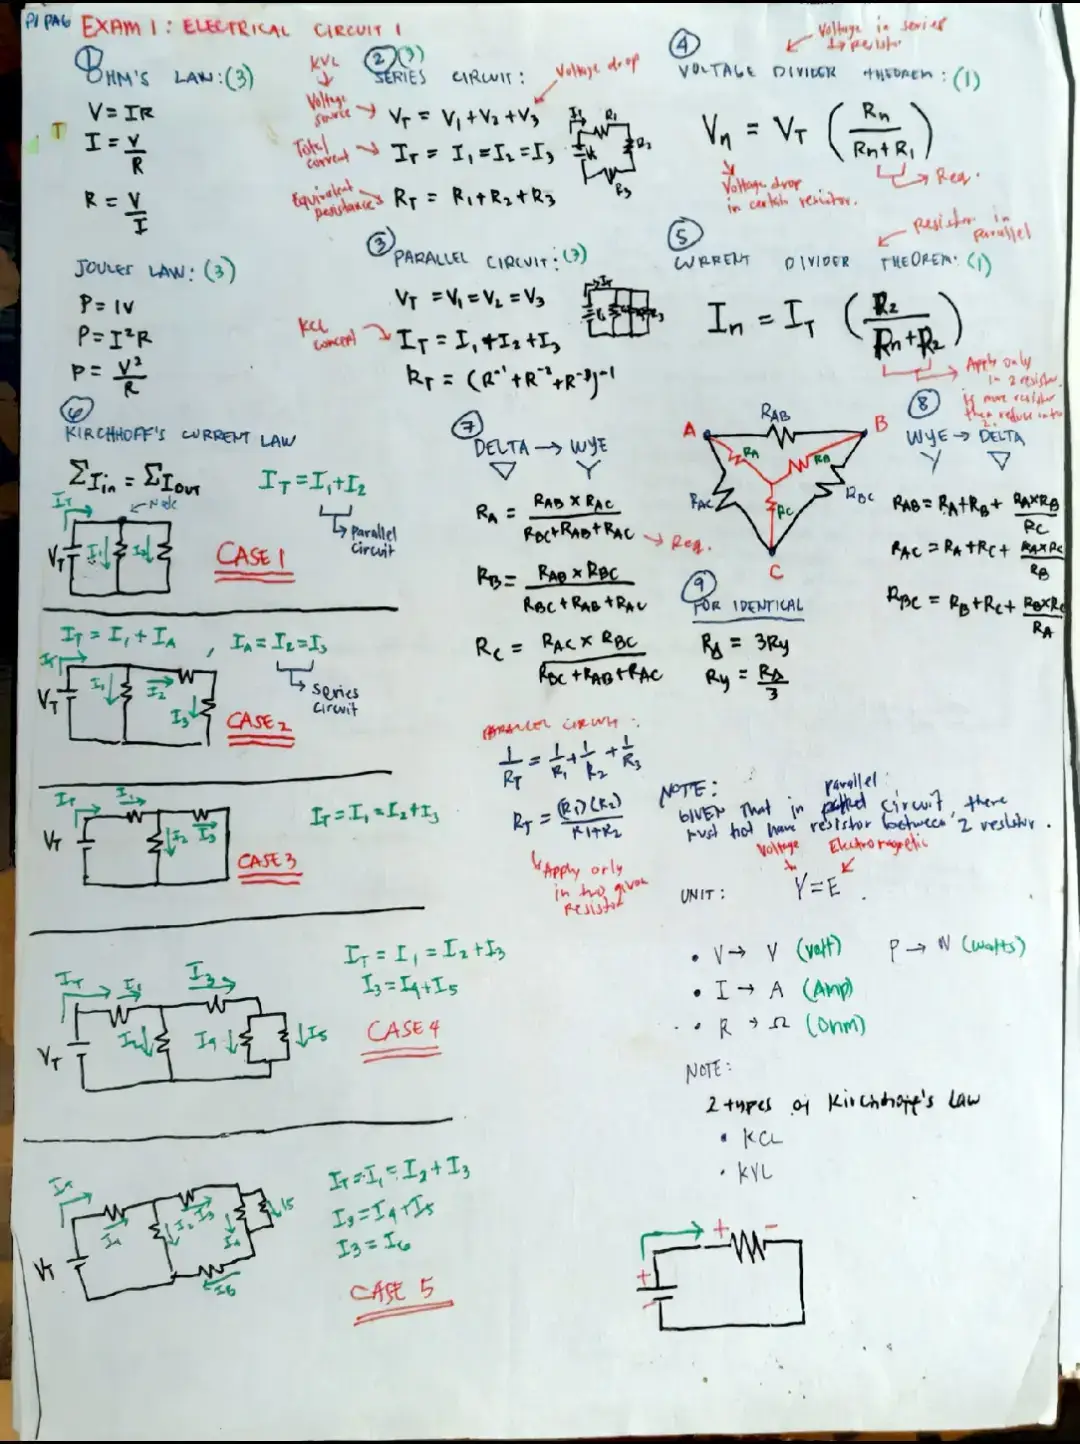 PIPAG EXAM 1: ELECTRICAL CIRCUIT 1
①
OHM'S LAW: (3)
V = IR
I = V/R
R = V/I
JOULES LAW: (3)
P = IV
P = I²R
P = V²/R
② (3)
SERIES CIRCUIT:
KVL
Voltage drop
Voltage source → V_T = V₁ + V₂ + V₃
Total current → I_T = I₁ = I₂ = I₃
Equivalent resistance → R_T = R₁ + R₂ + R₃
R₁
R₃
③ PARALLEL CIRCUIT: (3)
V_T = V₁ = V₂ = V₃
KCL concept → I_T = I₁ + I₂ + I₃
R_T = (R⁻¹ + R⁻² + R⁻³)⁻¹
④
Voltage in series
VOLTAGE DIVIDER THEOREM: (1)
Vn = V_T (Rn / Rn + R₁)
→ Req.
Voltage drop
in certain resistor.
⑤
Resistor in parallel
CURRENT DIVIDER THEOREM: (1)
In = I_T (R₂ / Rn + R₂)
Apply only
in 2 resistor
is more resistor
then reduce into
2.
⑥
KIRCHHOFF'S CURRENT LAW
ΣI_in = ΣI_OUT
I_T = I₁ + I₂
Node
parallel
circuit
I_T
V_T
I₁
I₂
CASE 1
I_T = I₁ + I_A , I_A = I₂ = I₃
series
circuit
I_T
V_T
I₁
I₂
I₃
CASE 2
I_T
I₁
V_T
I₂
I₃
I_T = I₁ = I₂ + I₃
CASE 3
I_T = I₁ = I₂ + I₃
I₃ = I₄ + I₅
I_T
I₁
I₃
V_T
I₂
I₄
I₅
CASE 4
I_T = I₁ = I₂ + I₃
I₃ = I₄ + I₅
I₃ = I₆
I_T
I₁
I₂
I₃
I₄
I5
I6
V_T
CASE 5
⑦
DELTA → WYE
R_A = R_AB x R_AC / R_BC + R_AB + R_AC → Req.
R_B = R_AB x R_BC / R_BC + R_AB + R_AC
R_C = R_AC x R_BC / R_BC + R_AB + R_AC
A
R_AB
B
R_A
R_B
R_AC
R_C
R_BC
C
⑧
WYE → DELTA
R_AB = R_A + R_B + R_A x R_B / R_C
R_AC = R_A + R_C + R_A x R_C / R_B
R_BC = R_B + R_C + R_B x R_C / R_A
⑨
FOR IDENTICAL
R_Δ = 3Ry
Ry = R_Δ / 3
PARALLEL CIRCUIT:
1/R_T = 1/R₁ + 1/R₂ + 1/R₃
R_T = (R₁)(R₂) / R₁ + R₂
Apply only
in two given
resistor
NOTE:
parallel
GIVEN That in circuit, there
must not have resistor between 2 resistor.
Voltage Electromagnetic
UNIT: V = E.
• V → V (volt) P → W (watts)
• I → A (Amp)
• R → Ω (Ohm)
NOTE:
2 types of Kirchhoff's Law
• KCL
• KVL
+ -
+
-